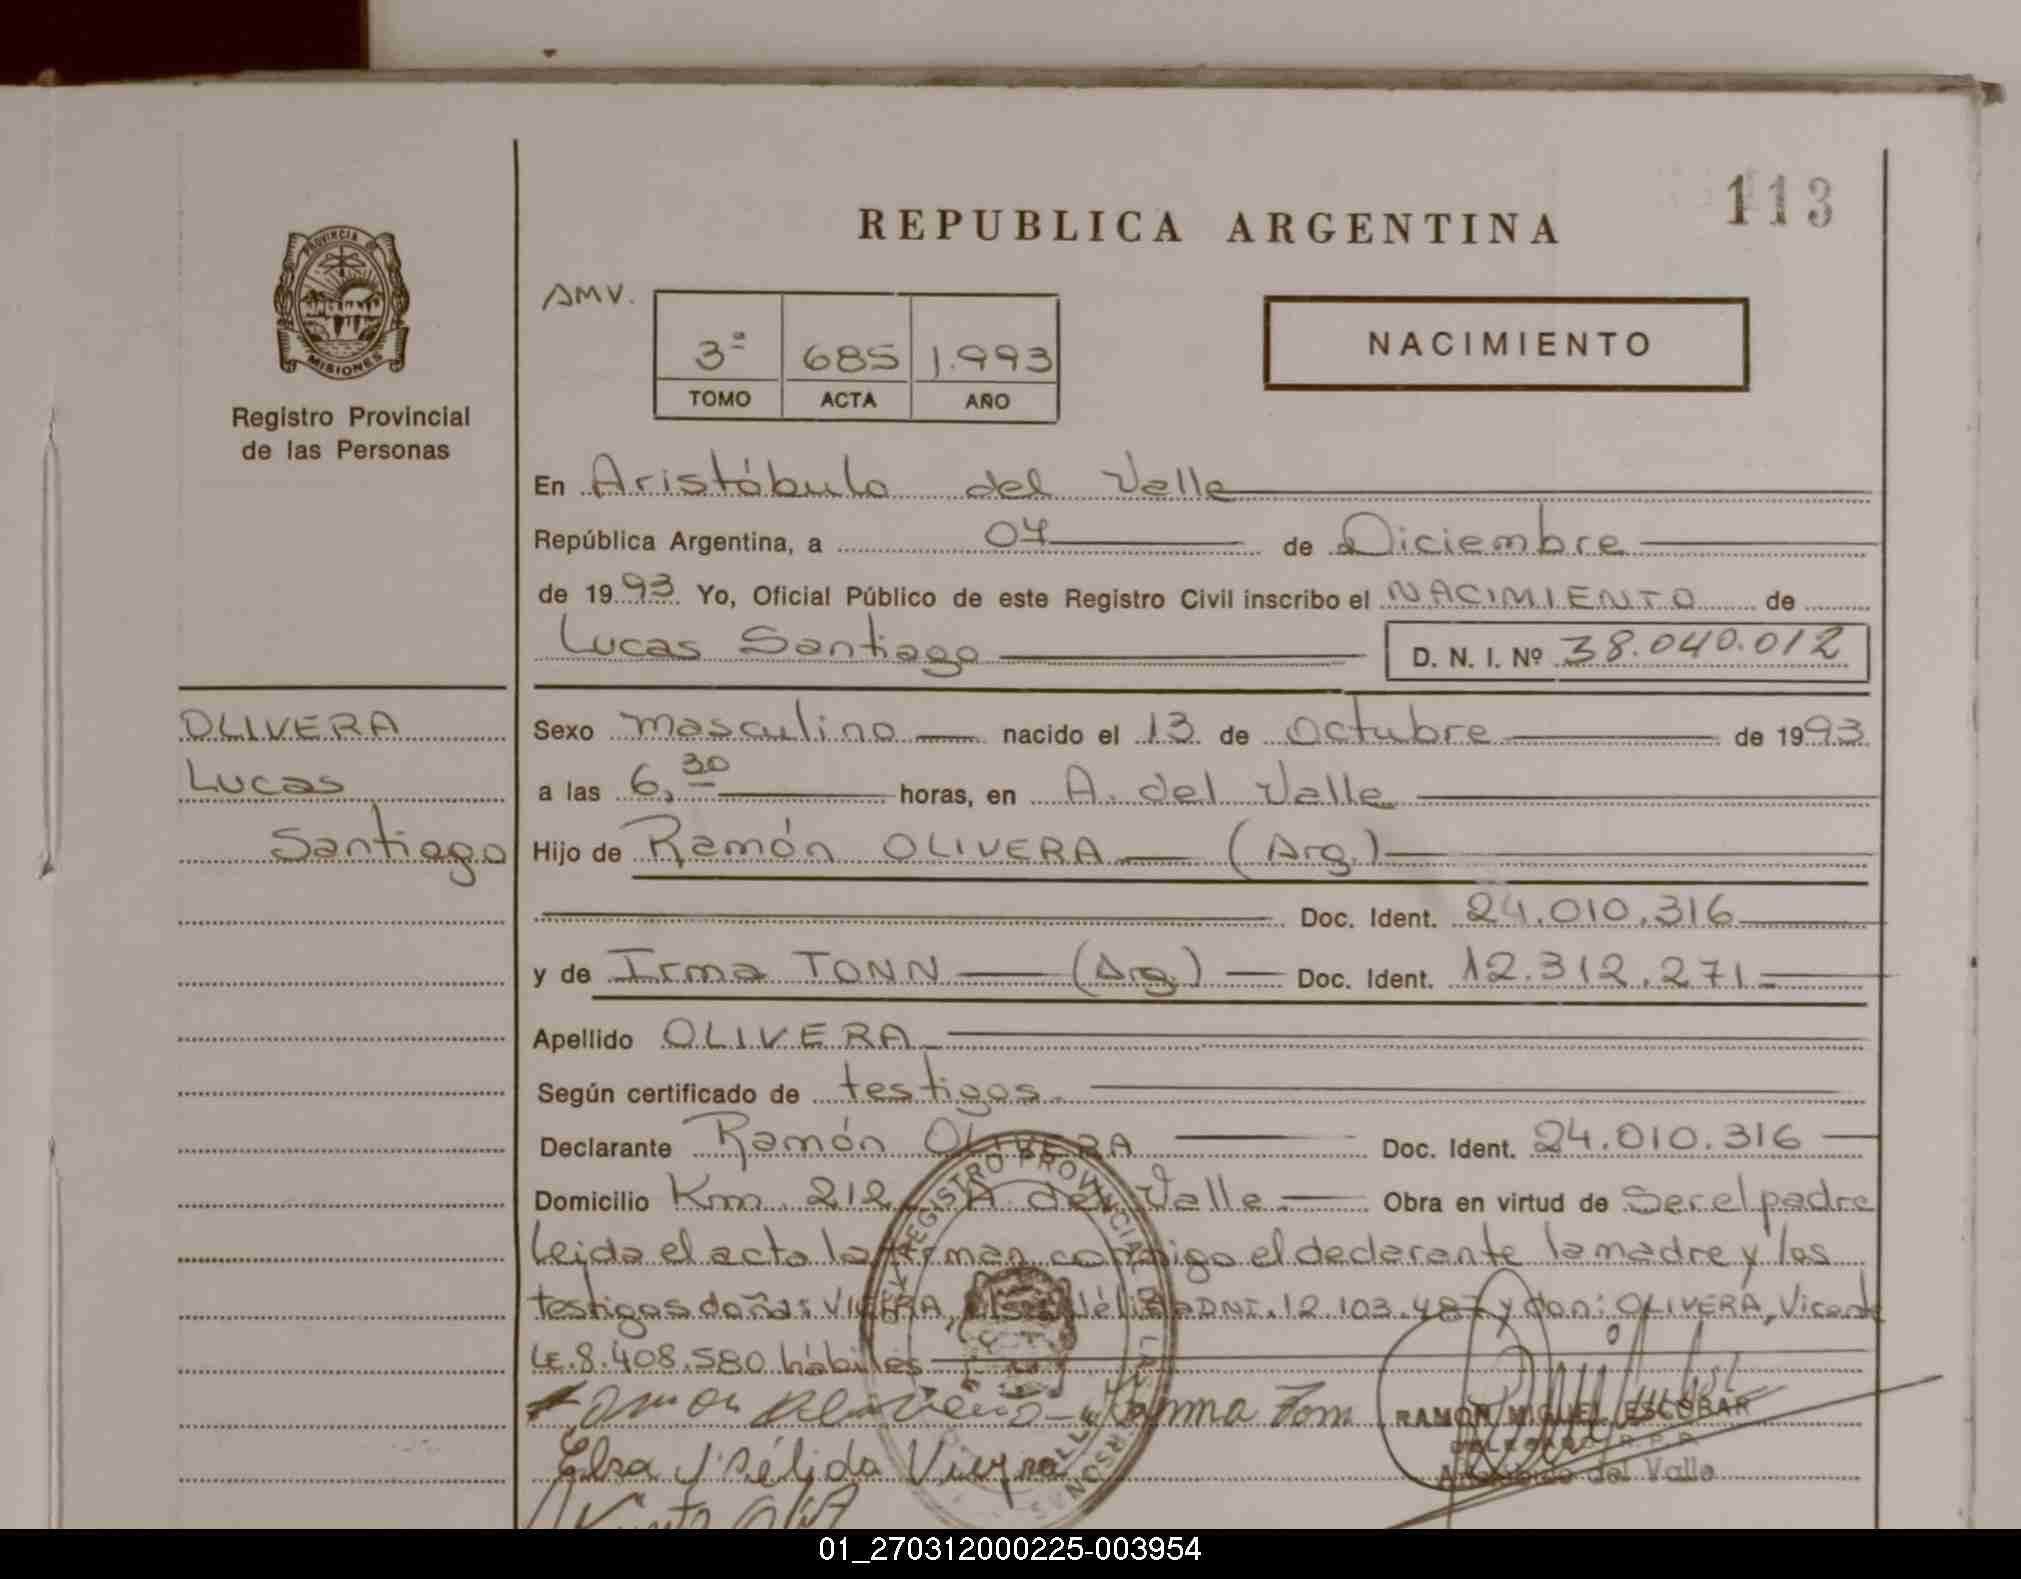 113
REPUBLICA ARGENTINA
PROVINCIA DE
MISIONES
Registro Provincial
de las Personas
AMV.
3ª 685 1.993
TOMO ACTA AÑO
NACIMIENTO
En Aristóbulo del Valle
República Argentina, a 07 de Diciembre
de 1993 Yo, Oficial Público de este Registro Civil inscribo el NACIMIENTO de
Lucas Santiago D. N. I. Nº 38.040.012
OLIVERA
Lucas
Santiago
Sexo masculino nacido el 13 de Octubre de 1993
a las 6,30 horas, en A. del Valle
Hijo de Ramón OLIVERA (Arg.)
Doc. Ident. 24.010.316
y de Irma TONN (Arg.) Doc. Ident. 12.312.271
Apellido OLIVERA
Según certificado de testigos.
Declarante Ramón OLIVERA Doc. Ident. 24.010.316
Domicilio Km. 212 A. del Valle Obra en virtud de Ser el padre
Leida el acta la firman conmigo el declarante la madre y los
testigos doña: VIERA, DNI. 12.103.487 y don: OLIVERA, Vicente
LE. 8.408.580 hábiles
REGISTRO PROVINCIAL DE LAS PERSONAS
RAMON MIGUEL ESCOBAR
DELEGADO R.P.P.
Aristóbulo del Valle
Elsa Vieyra
01_270312000225-003954